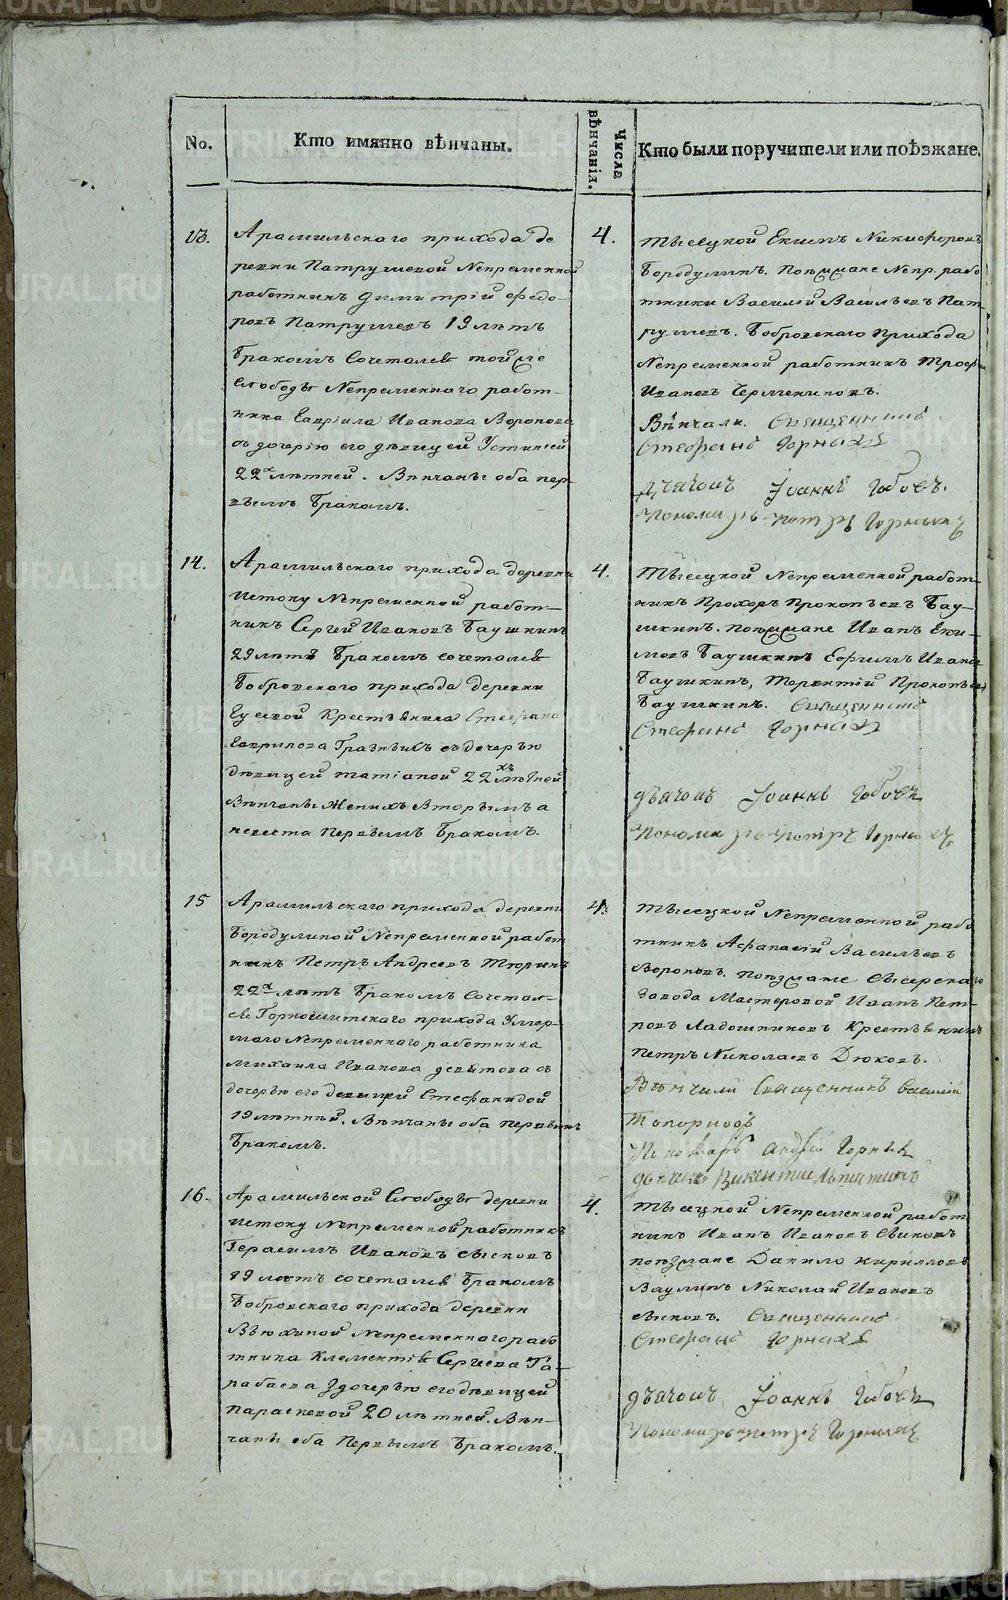 No.
Кто имянно вѣнчаны.
Числа вѣнчанія.
Кто были поручители или поѣзжане.
13.
Арамильскаго прихода де
ревни Патрушевой Непременной
работникъ Димитрій Федо-
ровъ Патрушевъ 19 лѣтъ
бракомъ сочетался тойже
слободы Непременнаго работ-
ника Гавріила Иванова Воронова
съ дочерью его девицей Устиніей
22х летней. Венчаны оба пер-
вымъ бракомъ.
4.
Тысецкой Екимъ Никифоровъ
Бородулинъ. Поезжане Непр. рабо
тники Василій Васильевъ Пат
рушевъ. Бобровскаго прихода
Непременной работникъ
Ивановъ
Вѣнчали. Священникъ
Стефанъ Горныхъ
Дьячокъ Іоаннъ
Пономарь Петръ Горныхъ
14.
Арамильскаго прихода деревни
Истоку Непременной работ-
никъ Сергій Ивановъ Баушкинъ
29 летъ бракомъ сочетался
Бобровскаго прихода деревни
Крестьянина Стефана
Гаврилова съ дочерью
девицей Татіаной 22хъ летней
Венчаны женихъ вторымъ а
невеста первымъ бракомъ.
4.
Тысецкой Непременной работ-
никъ Прохоръ Прокопьевъ Бау-
шкинъ. Поезжане Иванъ Еки-
мовъ Баушкинъ Ефимъ Ивановъ
Баушкинъ, Терентій Прокопьевъ
Баушкинъ. Священникъ
Стефанъ Горныхъ
дьячокъ Іоаннъ
Пономарь Петръ Горныхъ
15
Арамильскаго прихода деревни
Бородулиной Непременной работ
никъ Петръ Андреевъ Тюринъ
22х летъ бракомъ сочетал-
ся Горнощитскаго прихода умер-
шаго Непременнаго работника
Михаила Иванова Девятова съ
дочерью его девицей Стефанидой
19 летней. Венчаны оба первымъ
бракомъ.
4.
Тысецкой Непременной рабо
тникъ Афанасій Васильевъ
Вороновъ. поезжане Сысерскаго
завода Мастеровой Иванъ Пет-
ровъ Ладошниковъ Крестьянинъ
Петръ Николаевъ Дюковъ.
Венчали Священникъ Василій
Топорковъ
Пономарь Андрей Горныхъ
дьячекъ Викентіе
16.
Арамильской слободы деревни
Истоку Непременной работникъ
Герасимъ Ивановъ
19 летъ сочетался бракомъ
Бобровскаго прихода деревни
Вьюхиной Непременнаго рабо
тника Клементія Сергиева Та-
рабаева здочерью его девицей
Параскевой 20 летней. Вен-
чаны оба первымъ бракомъ.
4.
Тысецкой Непременной работ
никъ Иванъ Ивановъ
поезжане Данило Кирилловъ
Ваулинъ Николай Ивановъ
Священникъ
Стефанъ Горныхъ
дьячокъ Іоаннъ
Пономарь Петръ Горныхъ
METRIKI.GASO-URAL.RU